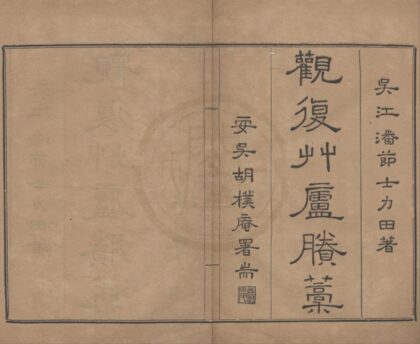 吳江潘節士力田著
觀復艸廬賸藁
安吳胡樸庵署耑